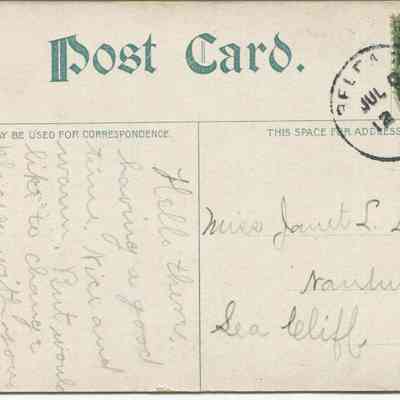 Post Card.
BELFA
JUL
12
AY BE USED FOR CORRESPONDENCE.
THIS SPACE FOR ADDRESS
Hello there.
having a good
time. Nice and
warm. But would
like to change
places with you
Miss Janet L.
Nantu
Sea Cliff.